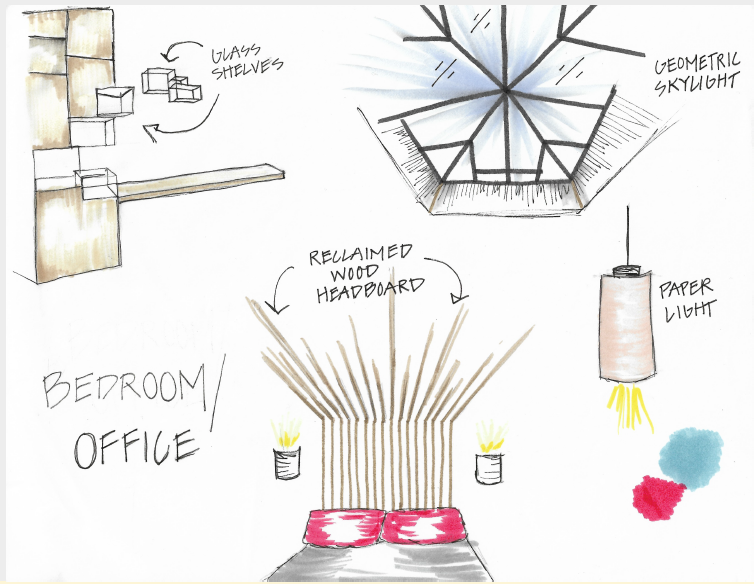 GLASS
SHELVES
GEOMETRIC
SKYLIGHT
RECLAIMED
WOOD
HEADBOARD
PAPER
LIGHT
BEDROOM/
OFFICE